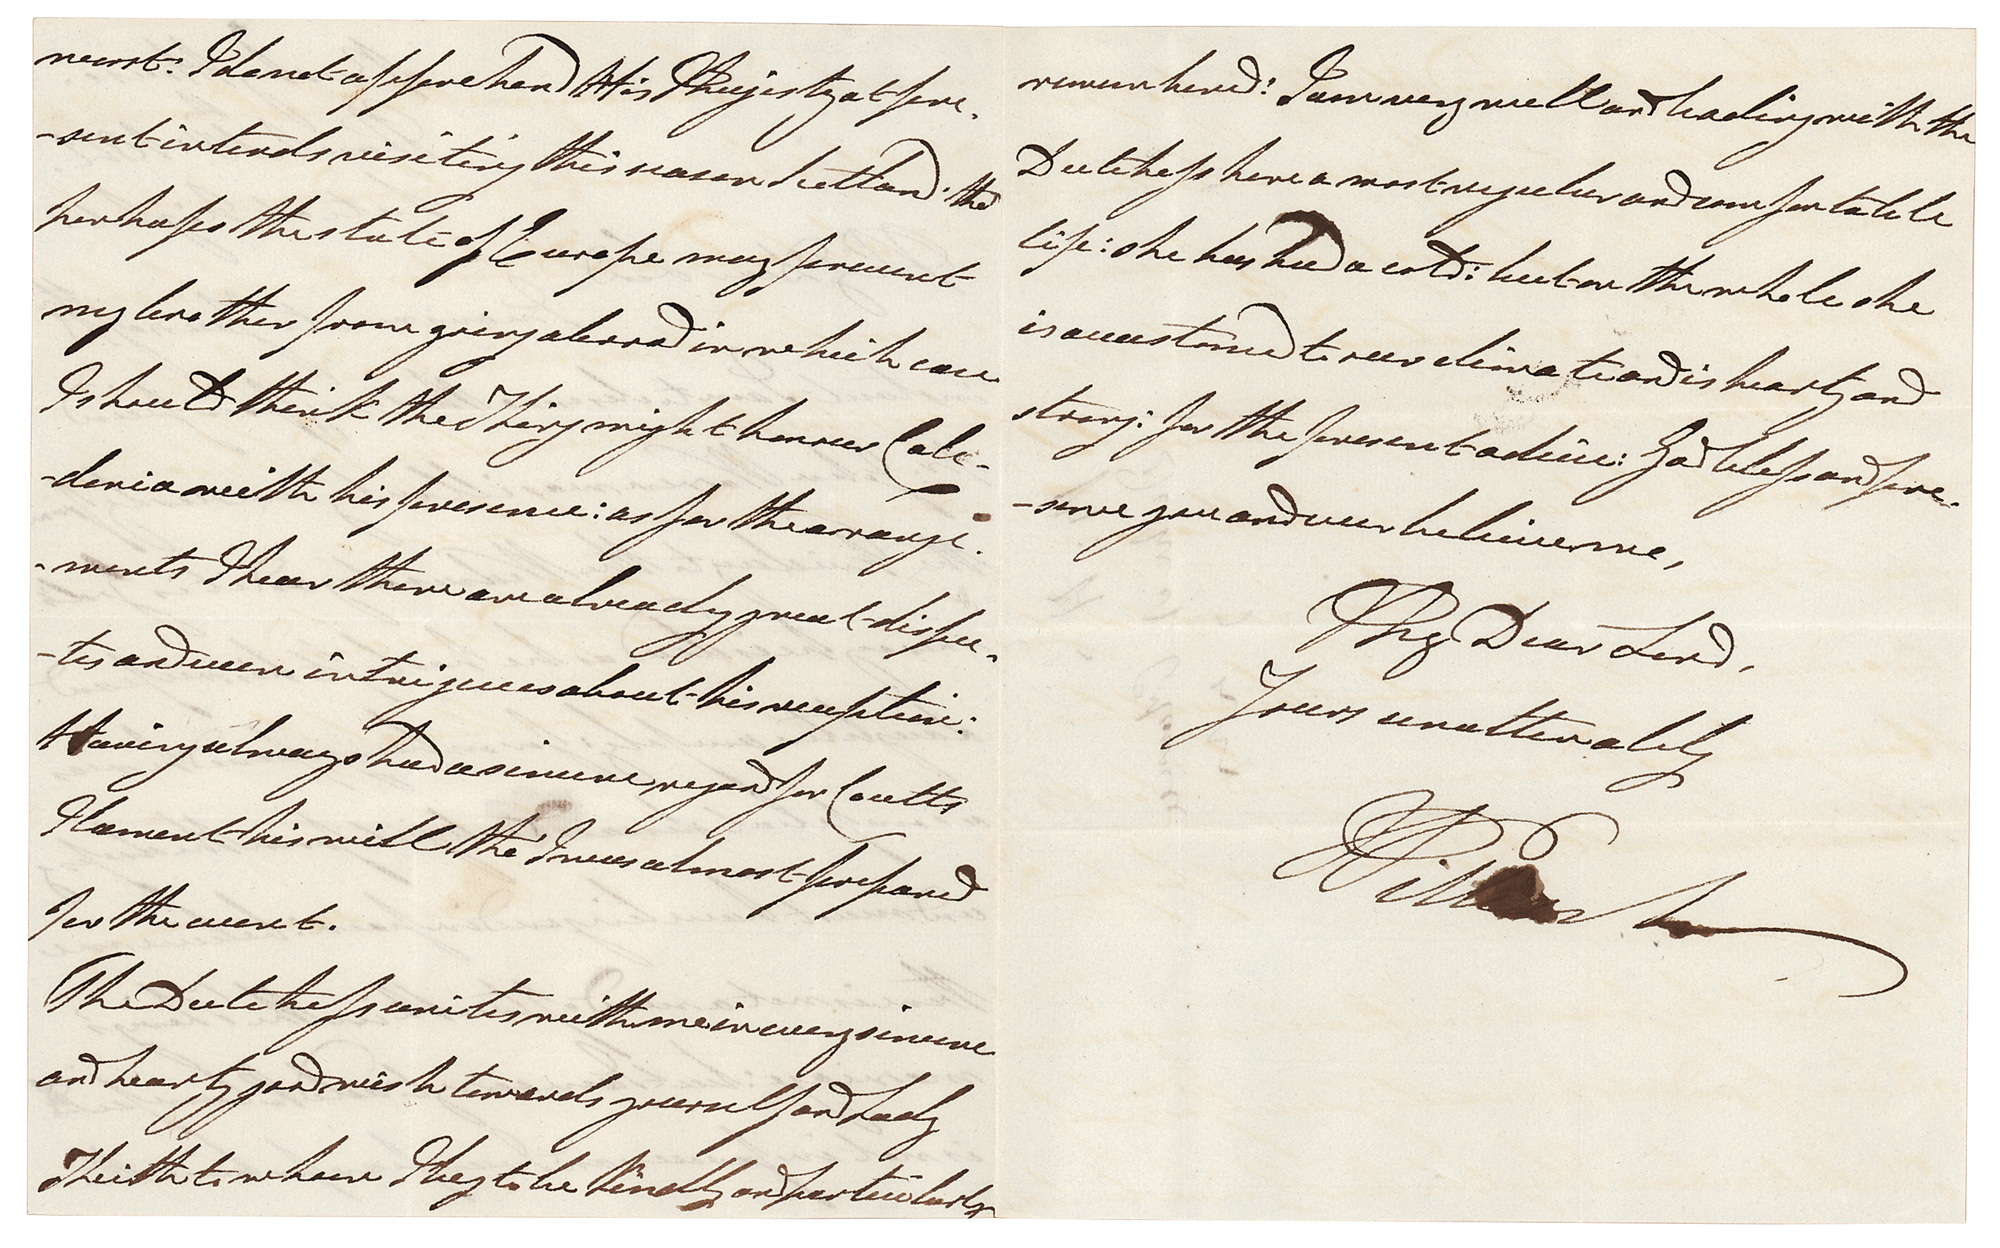 worst: I do not apprehend His Majesty at pre-
-sent intends visiting this season Scotland: tho'
perhaps the state of Europe may prevent
my brother from going abroad in which case
I should think the King might honour Cale-
-donia with his presence: as for the arrange-
-ments I hear there are already great dispu-
-tes and even intrigues about his reception:
Having always had a sincere regard for Coutts
I lament his will tho' I was almost prepared
for the event.
The Dutchess unites with me in every sincere
and hearty good wish towards yourself and Lady
Keith to whom I beg to be kindly and particularly
remembered: I am very well and leading with the
Dutchess here a most regular and comfortable
life: she has had a cold: but on the whole she
is accustomed to our climate and is hearty and
strong: for the present adieu: God bless and pre-
-serve you and ever believe me,
My Dear Lord,
Yours unalterably
William